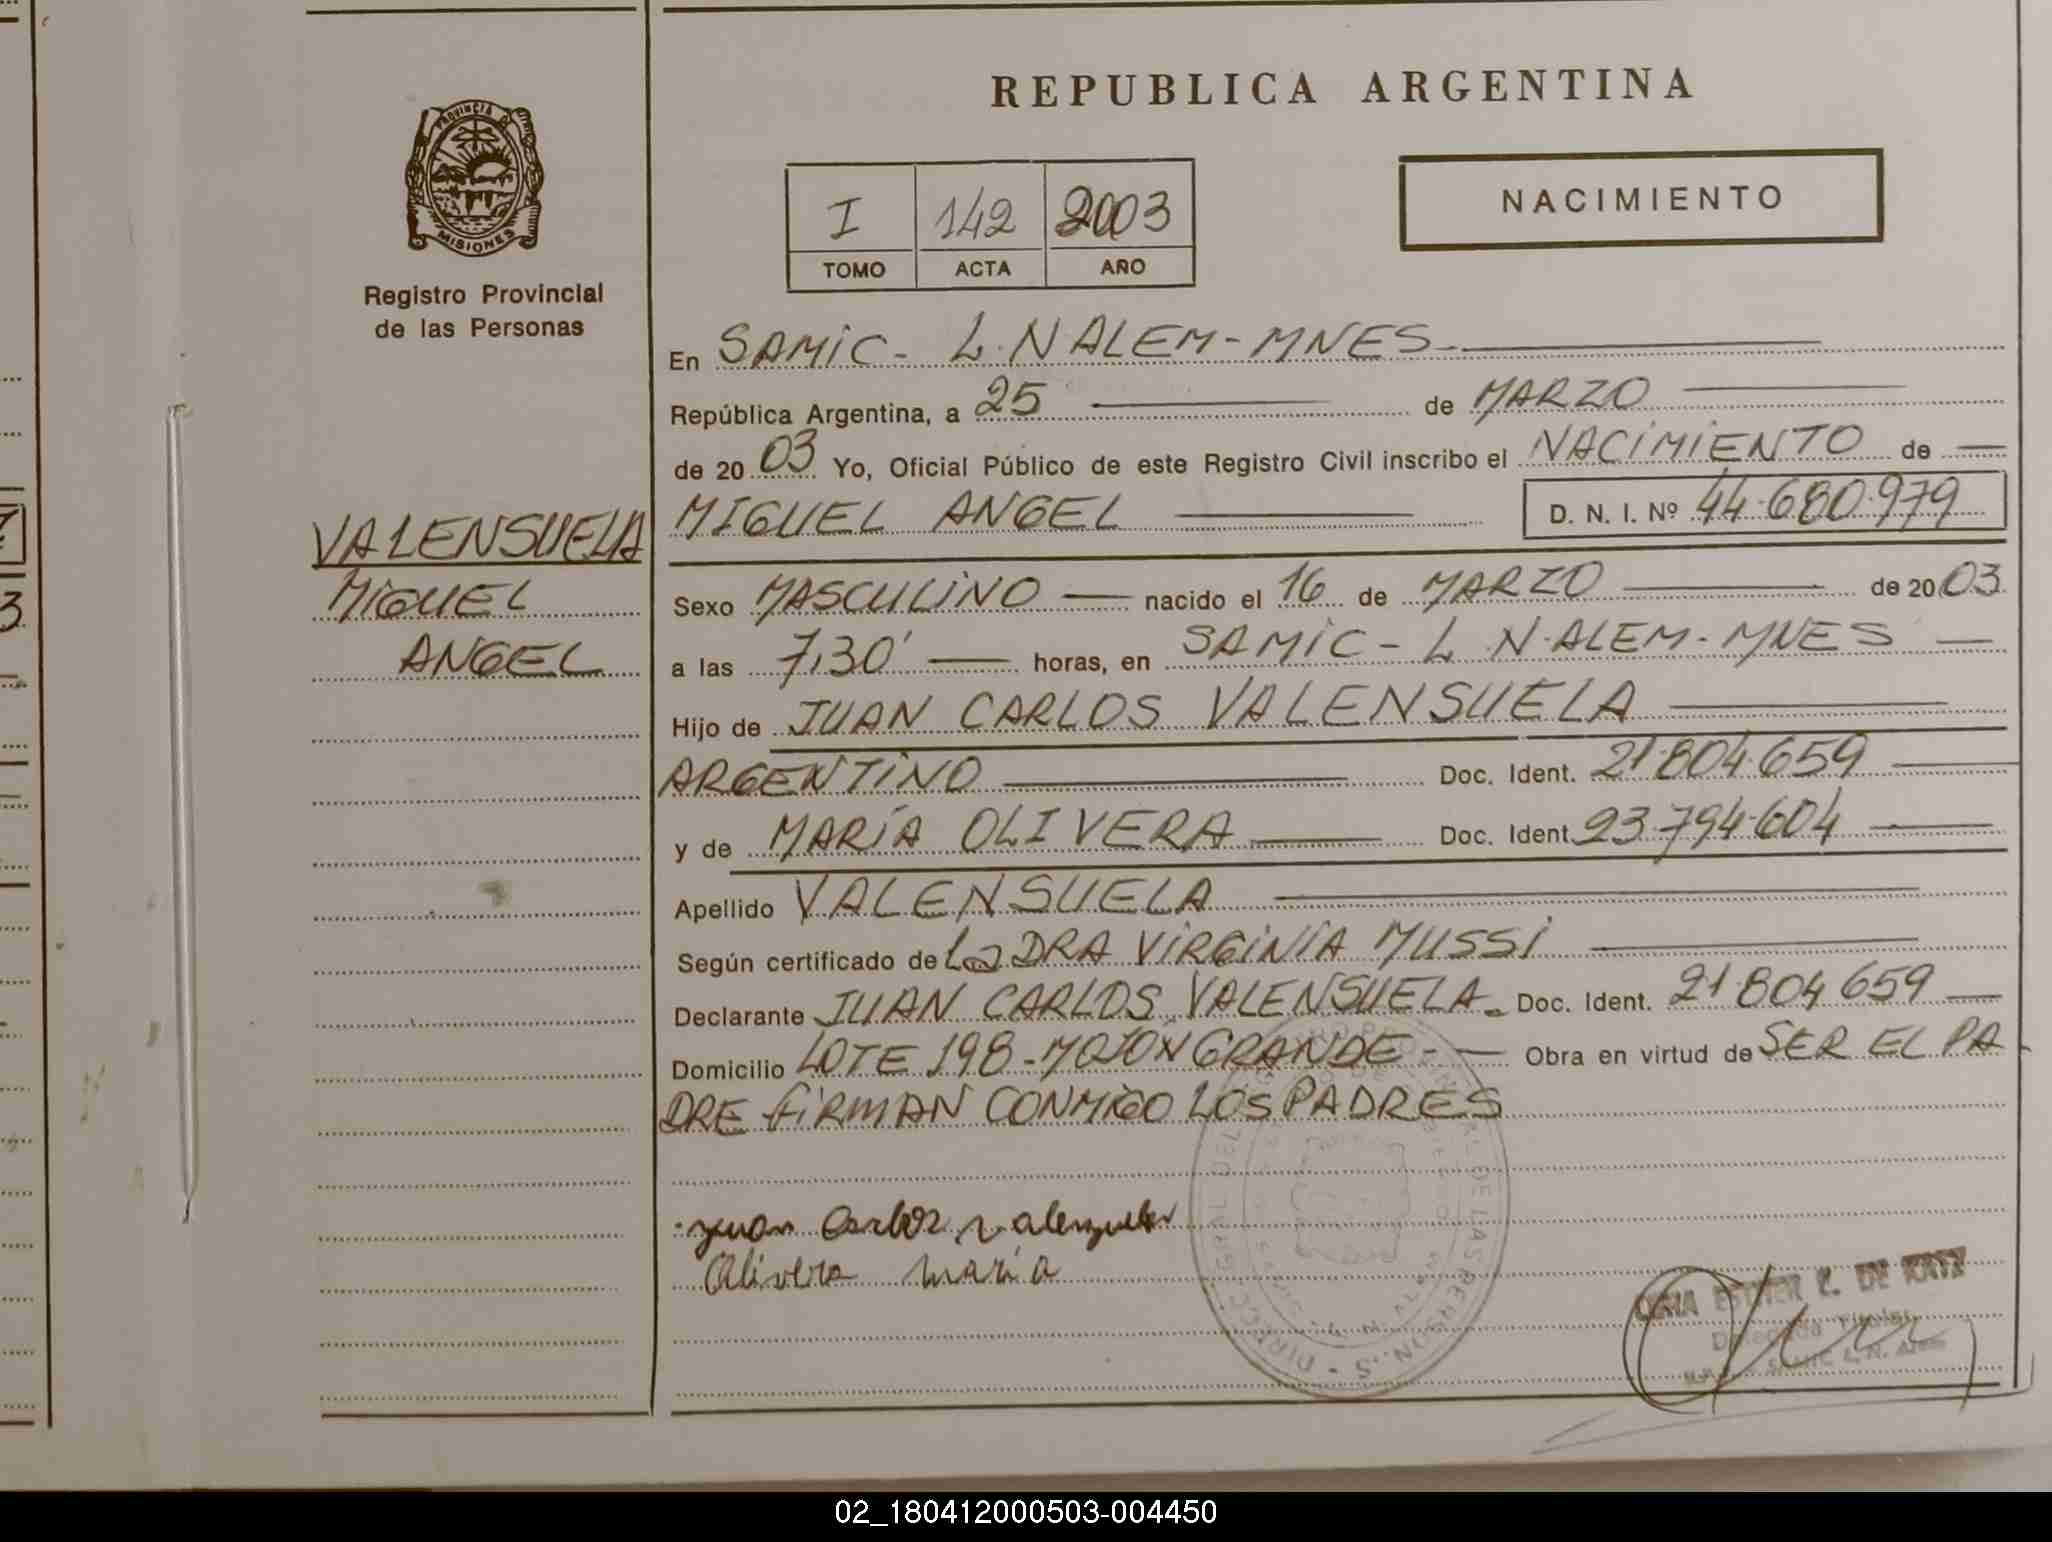 PROVINCIA DE
MISIONES
Registro Provincial
de las Personas
VALENSUELA
MIGUEL
ANGEL
REPUBLICA ARGENTINA
I 142 2003
TOMO ACTA AÑO
NACIMIENTO
En SAMIC - L. N ALEM - MNES
República Argentina, a 25 de MARZO
de 20 03 Yo, Oficial Público de este Registro Civil inscribo el NACIMIENTO de
MIGUEL ANGEL D. N. I. Nº 44.680.979
Sexo MASCULINO nacido el 16 de MARZO de 20 03
a las 7,30' horas, en SAMIC - L N. ALEM - MNES
Hijo de JUAN CARLOS VALENSUELA
ARGENTINO Doc. Ident. 21.804.659
y de MARÍA OLIVERA Doc. Ident. 23.794.604
Apellido VALENSUELA
Según certificado de La DRA VIRGINIA MUSSI
Declarante JUAN CARLOS VALENSUELA. Doc. Ident. 21 804 659
Domicilio LOTE 198 - MOJON GRANDE - Obra en virtud de SER EL PA
DRE FIRMAN CONMIGO LOS PADRES
Juan Carlos Valenzuela
Olivera María
ESTHER DE
Delegada Titular
02_180412000503-004450